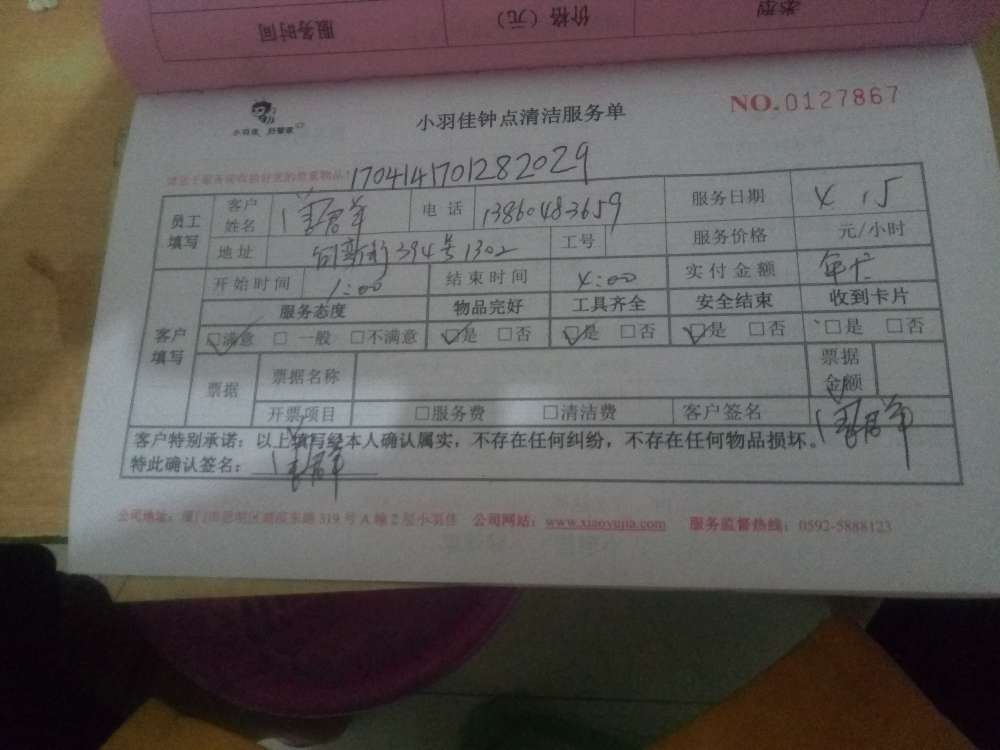 服务时间 价格（元） 类型
小羽佳 好管家
小羽佳钟点清洁服务单
NO.0127867
170414701282029
员工填写 客户姓名 电话 13860483659 服务日期 4.15
地址 394号1302 工号 服务价格 元/小时
客户填写 开始时间 1:00 结束时间 4:00 实付金额 年卡
服务态度 物品完好 工具齐全 安全结束 收到卡片
☑满意 □一般 □不满意 ☑是 □否 ☑是 □否 ☑是 □否 □是 □否
票据 票据名称 票据金额
开票项目 □服务费 □清洁费 客户签名
客户特别承诺：以上填写经本人确认属实，不存在任何纠纷，不存在任何物品损坏。
特此确认签名：
公司地址：厦门市思明区湖滨东路319号A幢2层小羽佳 公司网站：www.xiaoyujia.com 服务监督热线：0592-5888123